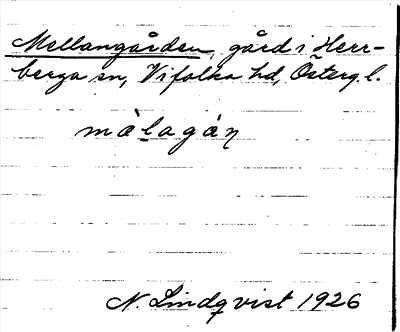 Mellangården, gård i Herr-
berga sn, Vifolka hd, Österg. l.
mȧ̀lagȧ́n
N. Lindqvist 1926